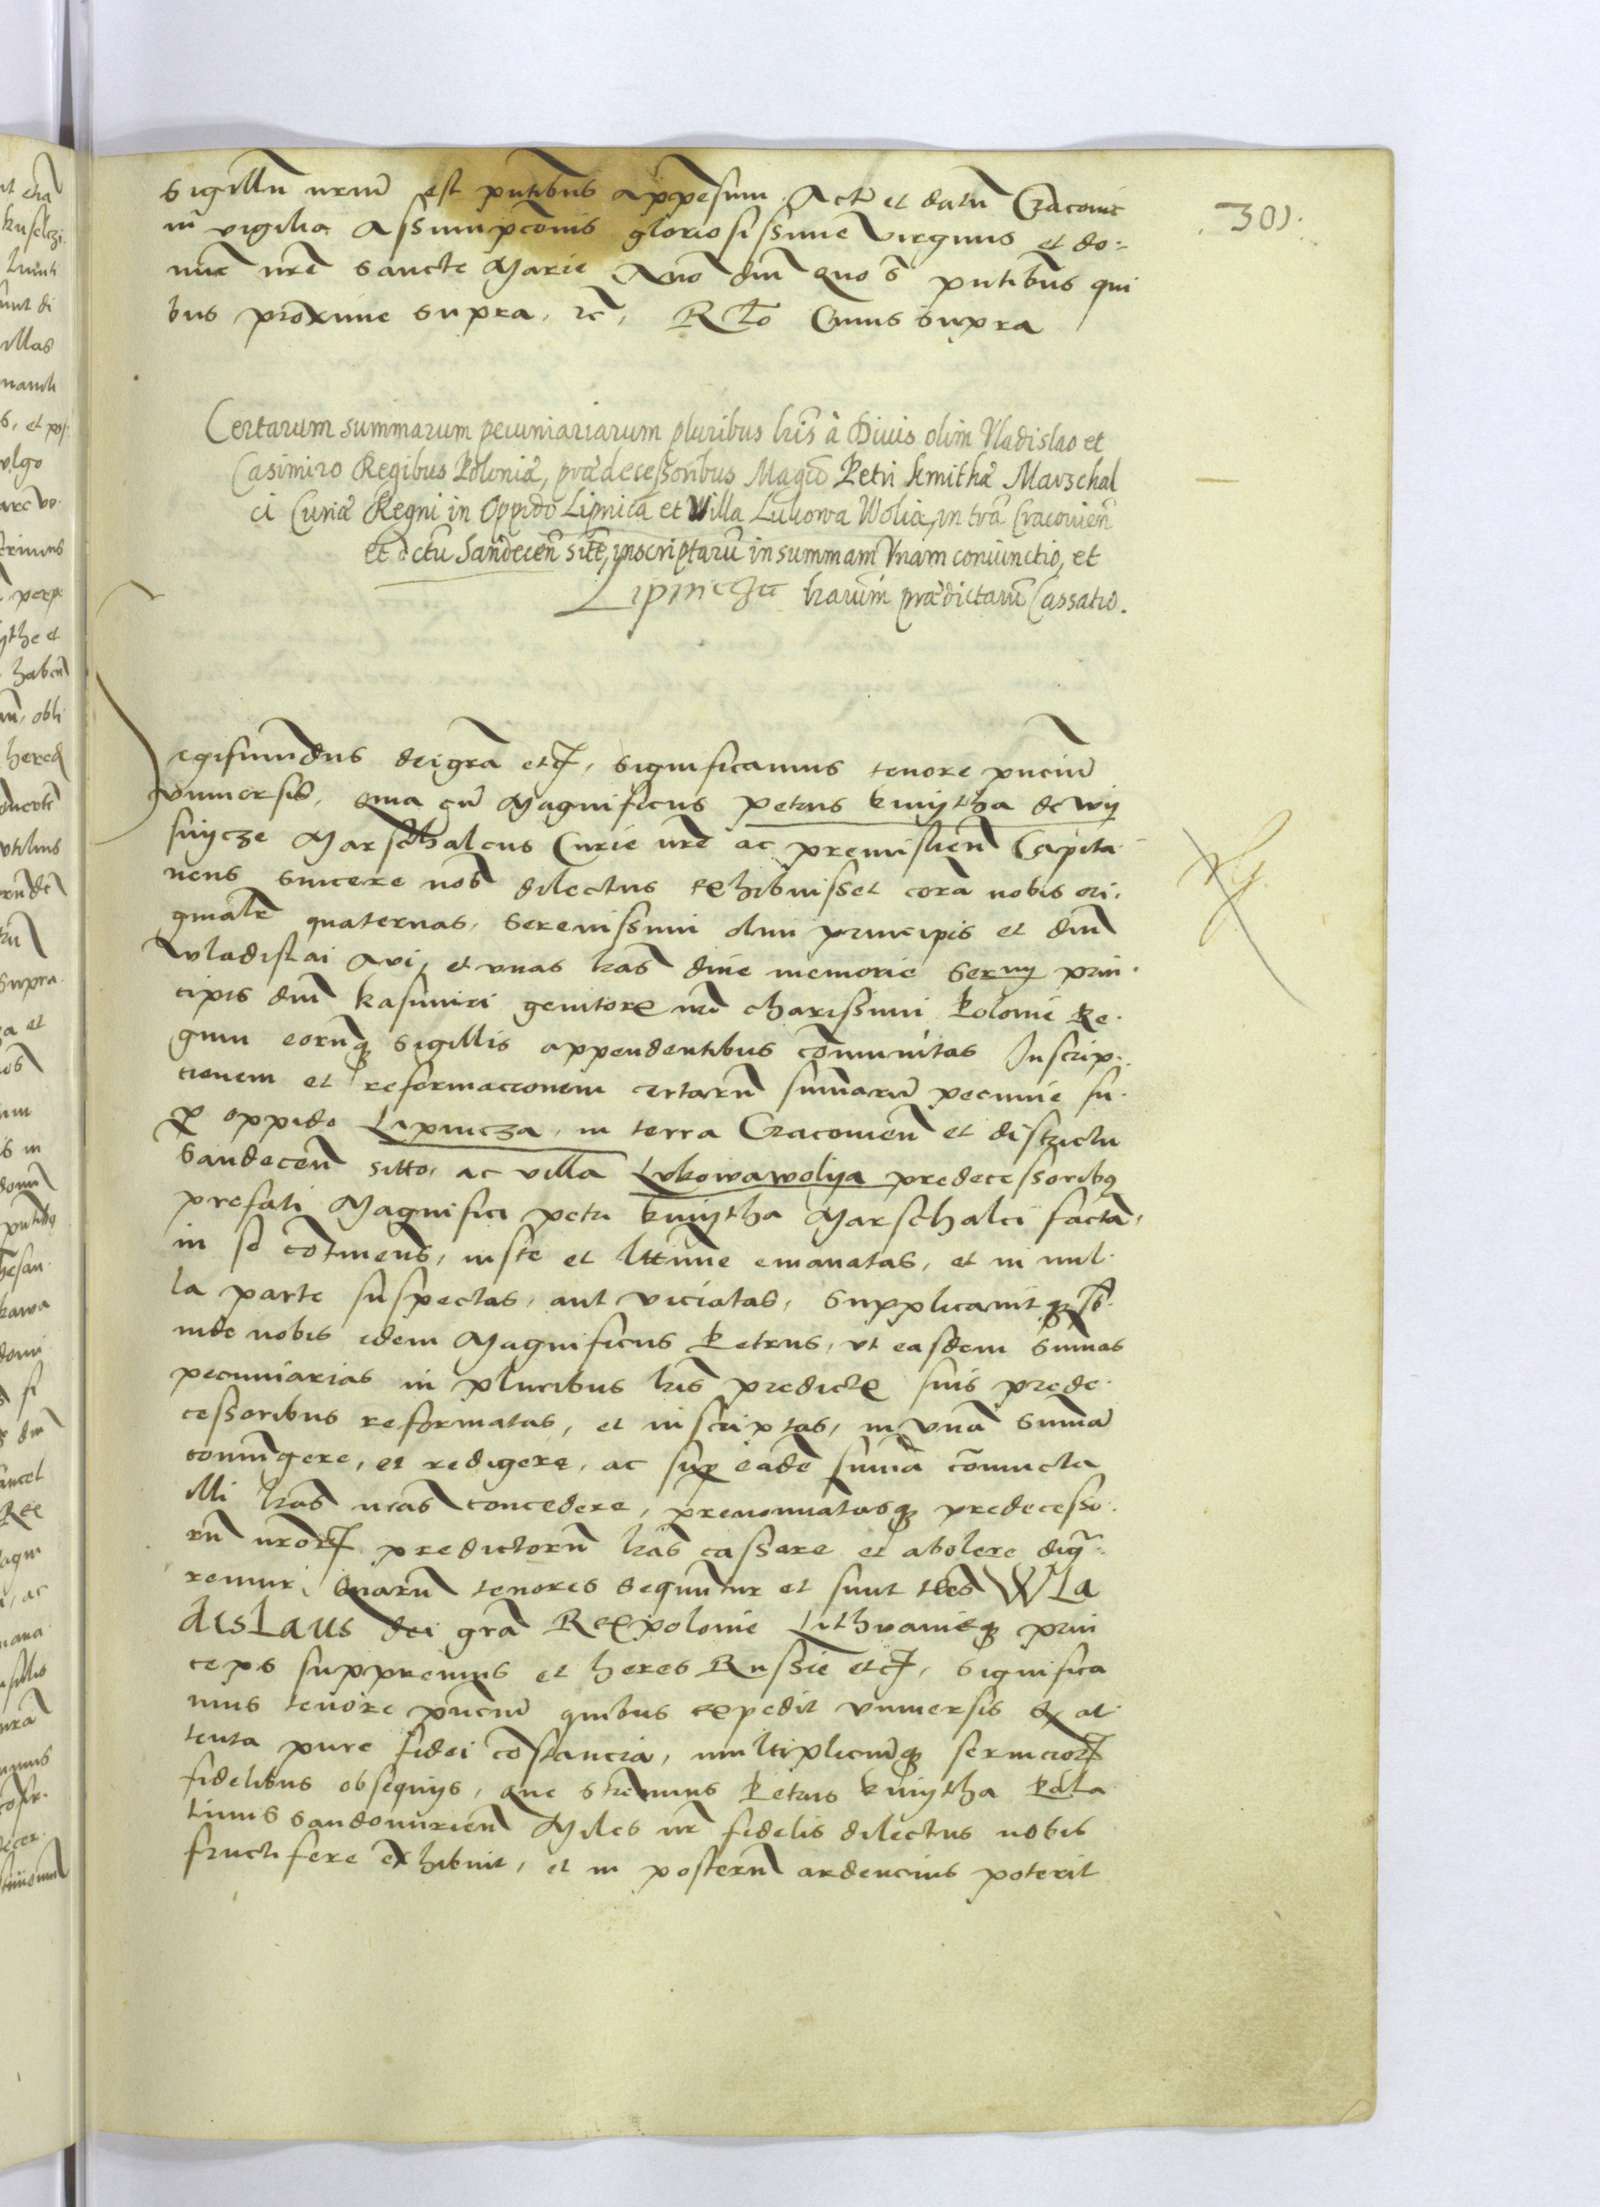 sigillū nrūm est pntibus appēsum Actū et datū Cracovie
in vigilia Assumpcōnis gloriosissime virginis et do=
mine nrē Sancte Marie Anō dnī quo s̄ pntibus qui
bus proxime supra, zc̄, Rlo Cuius supra
301.
Certarum summarum pecuniariarum pluribus lrīs à Diuis olim Vladislao et
Casimiro Regibus Poloniæ, prædecessoribus Magcī Petri Kmithæ Marschal
ci Curiæ Regni in Oppido Lipnica et Villa Lukowa Wolia, in trā Cracouien̄
et dctū Sandecen̄ sitē, inscriptarū in summam Vnam coniunctio, et
Lipnicza lrarum prædictarū Cassatio.
egismundus dei grā etc, significamus tenore pnciū
vniuersis, quia cū Magnificus petrus kmytha de wy
snycze Marschalcus Curie nrē ac premislien̄ Capita
neus sincere nob̄ dilectus exhibuisset corā nobis ori,
ginalē quaternas, Serenissimi olim principis et dnī
vladislai Aui, et vnas lrās diue memorie Sernij prin
cipis dnī kasimiri genitorē nrī charissimi Polonie Re
gum eorūq sigillis appendentibus cōmunitas Inscrip
cionem et reformaccionem certarū sum̄arū pecunie su
p oppido Lipnicza, in terra Cracouien̄ et districtu
Sandecen̄ sitto, ac villa Lukowawolya predecessoribq
prefati Magnifici petri kmytha Marschalci factā,
in se cōtinens̄, iuste et ltti̅me emanatas, et in nul
la parte suspectas, aut viciatas, Supplicauitq sb̄
inde nobis idem Magnificus Petrus, vt easdem sum̄as
pecuniarias in pluribus lrīs predictē suis prede
cessoribus reformatas, et inscriptas, in vnā sum̄ā
coniūgere, et redigere, ac sup eadē sum̄a cōniucta
illi lrās nrās concedere, prenominatasq predecesso
rū nrōr predictorū lrās cassare et abolere dig̃
remur, Quarū tenores sequntur et sunt tles WLa
disLaus dei grā Rex polonie Lithvanieq prin
ceps suppremus et heres Russie etc, Significa
mus tenore pnciū quibus expedit vniuersis Ex at
tenta pure fidei cōstancia, multipliciūq seruicior
fidelibus obsequijs, que Strenuus Petrus kmytha Pala
tinus Sandomirien̄ Miles nr̄ fidelis dilectus nobis
fructifere exhibuit, et in posterū ardencius poterit